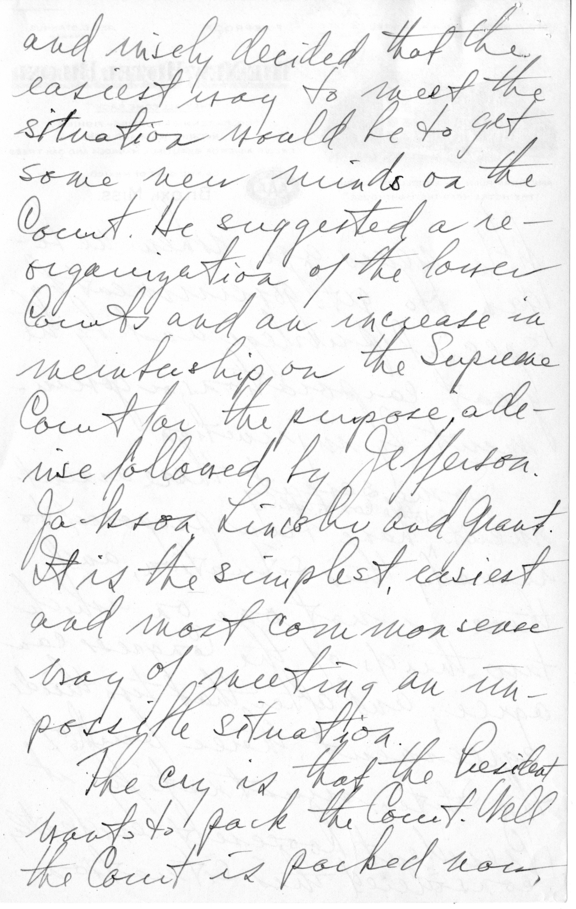 and wisely decided that the
easiest way to meet the
situation would be to get
some new minds on the
Court. He suggested a re-
organization of the lower
Courts and an increase in
membership on the Supreme
Court for the purpose, a de-
vise followed by Jefferson.
Jackson, Lincoln and Grant.
It is the simplest, easiest
and most commonsense
way of meeting an im-
possible situation.
The cry is that the President
wants to pack the Court. Well
the Court is packed now,